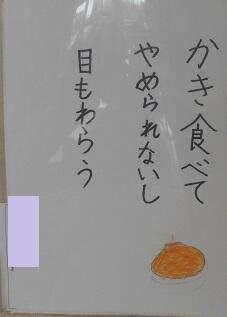 かき食べて
やめられないし
目もわらう